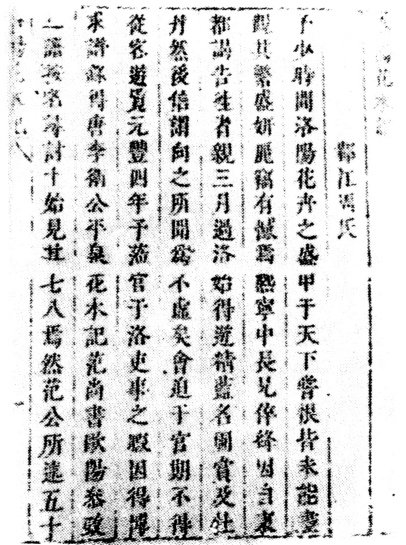 洛陽花木記
鄞江周氏
予少時聞洛陽花卉之盛甲于天下嘗恨皆未能盡
觀其繁盛妍麗竊有憾焉熙寧中長兄倅絳因自東
都謁告往省親三月過洛始得遊精藍名圃賞及牡
丹然後信謂向之所聞為不虛矣會迫于官期不得
從容遊覽元豐四年予蒞官于洛吏事之暇因得博
求譜錄得唐李衛公平泉花木記范尚書歐陽叅政
二譜按名尋討十始見其七八焉然范公所述五十